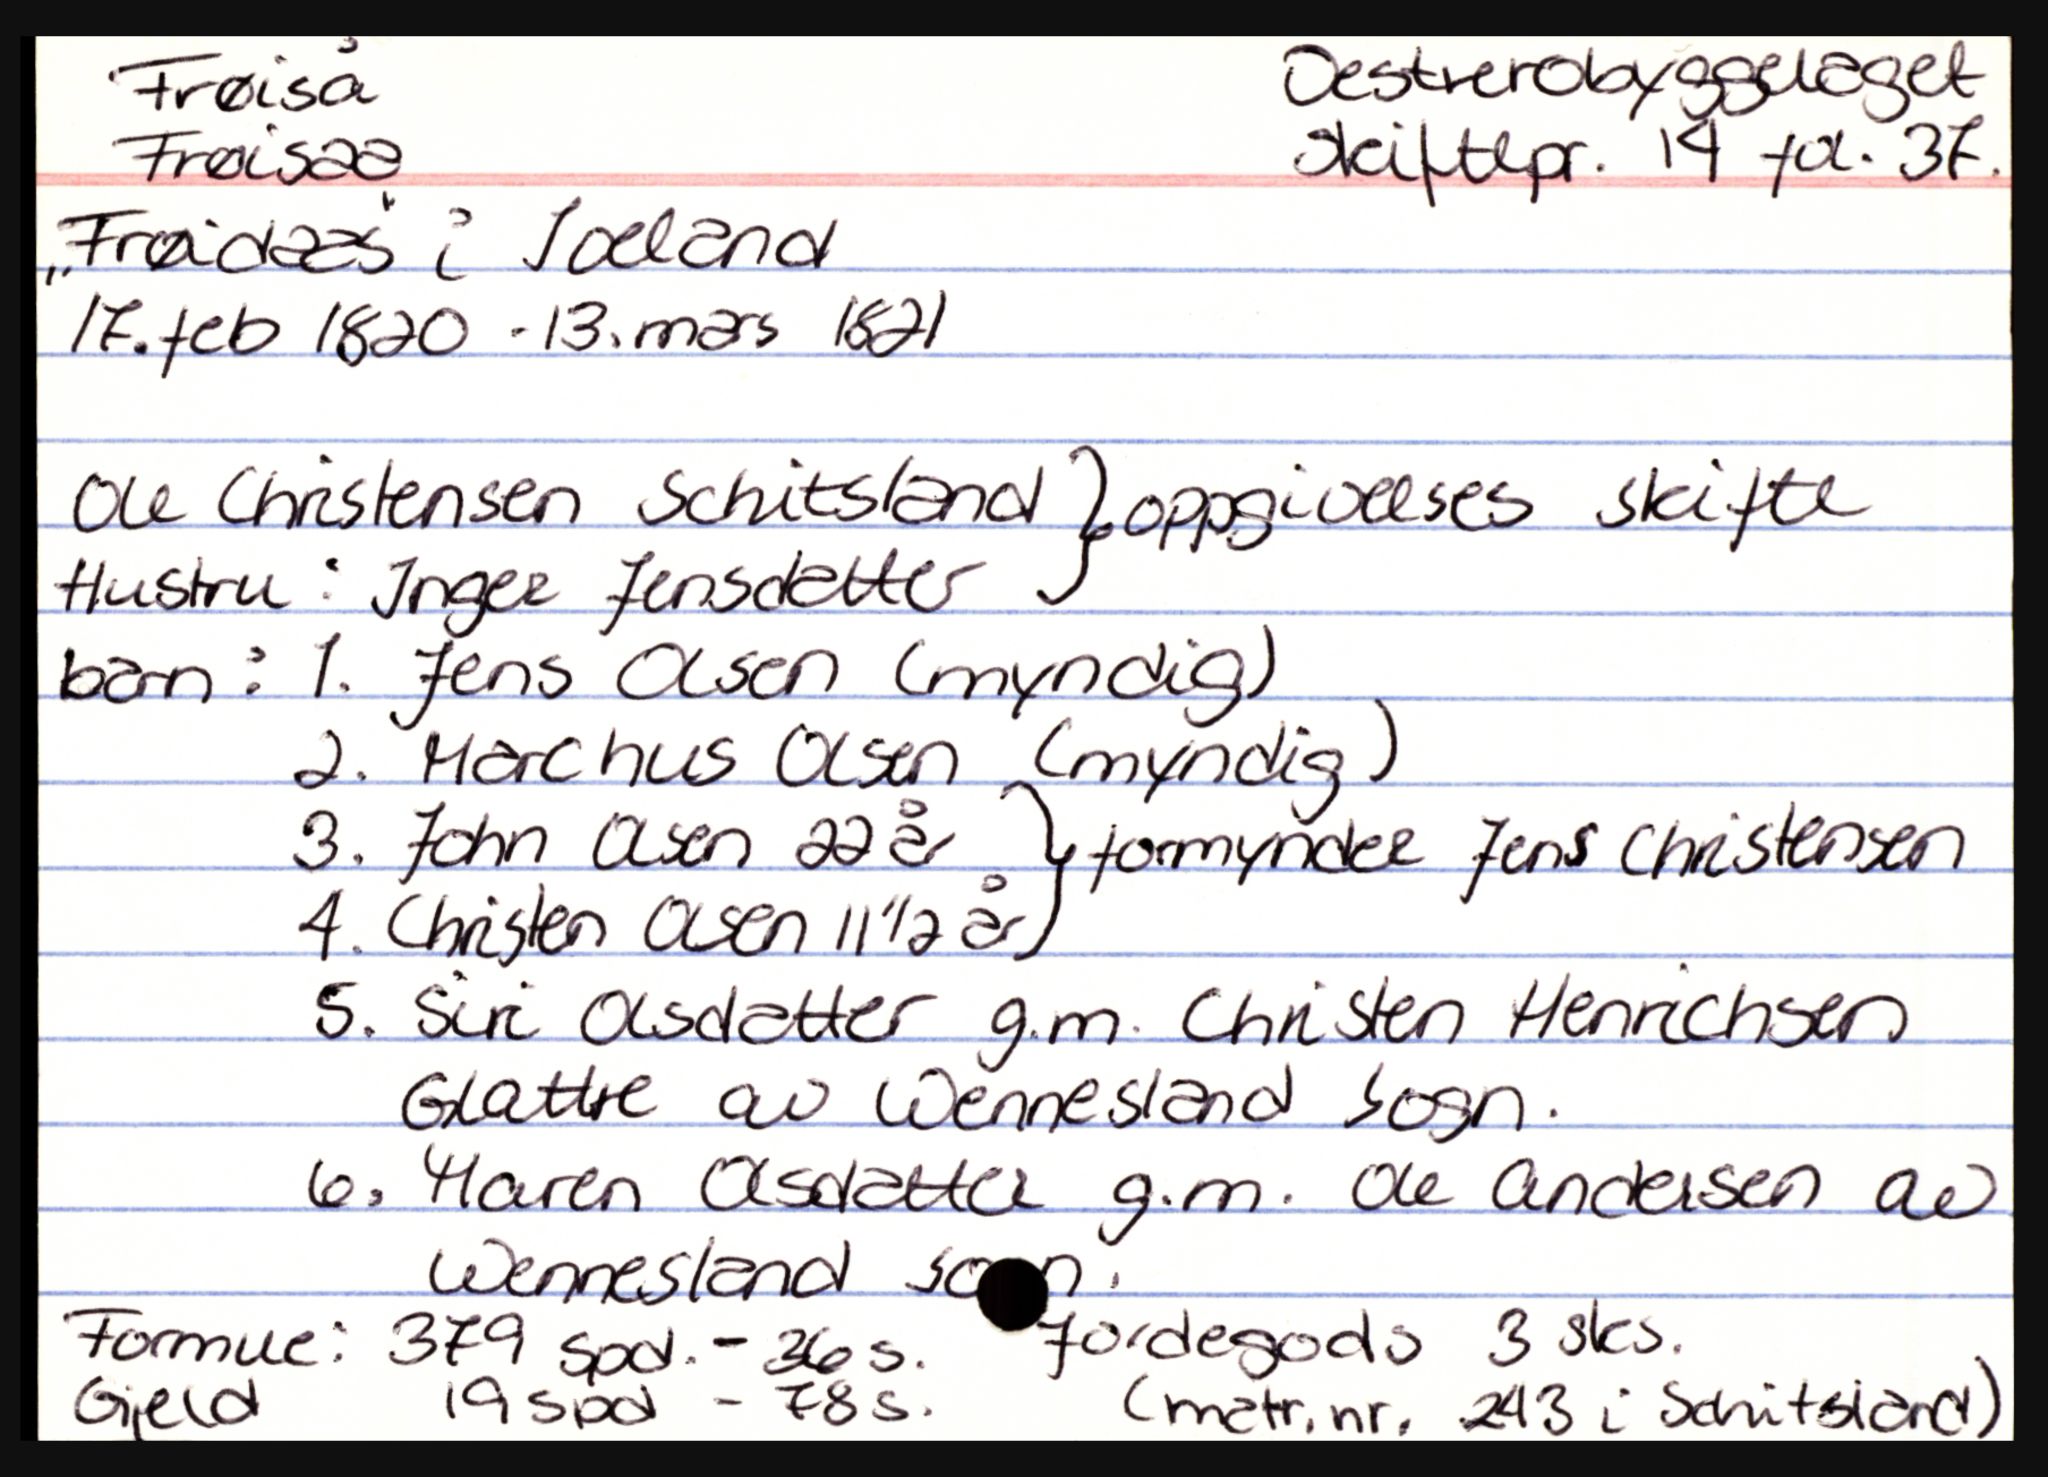 Frøiså
Oestrerobyggelaget
Frøisaa
skiftepr. 14 fol. 37.
„Frøidaas" i Iveland
17. feb 1820 - 13. mars 1821
Ole Christensen Schitsland } oppgivelses skifte
Hustru: Inger Jensdatter
barn: 1. Jens Olsen (myndig)
2. Marchus Olsen (myndig)
3. John Olsen 22 år } formynder Jens Christensen
4. Christen Olsen 11 1/2 år
5. Siri Olsdatter g.m. Christen Henrichsen
Glattre av Wennesland sogn.
6. Maren Olsdatter g.m. Ole Andersen av
Wennesland sogn.
Formue: 379 spd. - 36 s. Jordegods 3 sks.
Gjeld 19 spd - 78 s. (matr. nr. 243 i Schitsland)